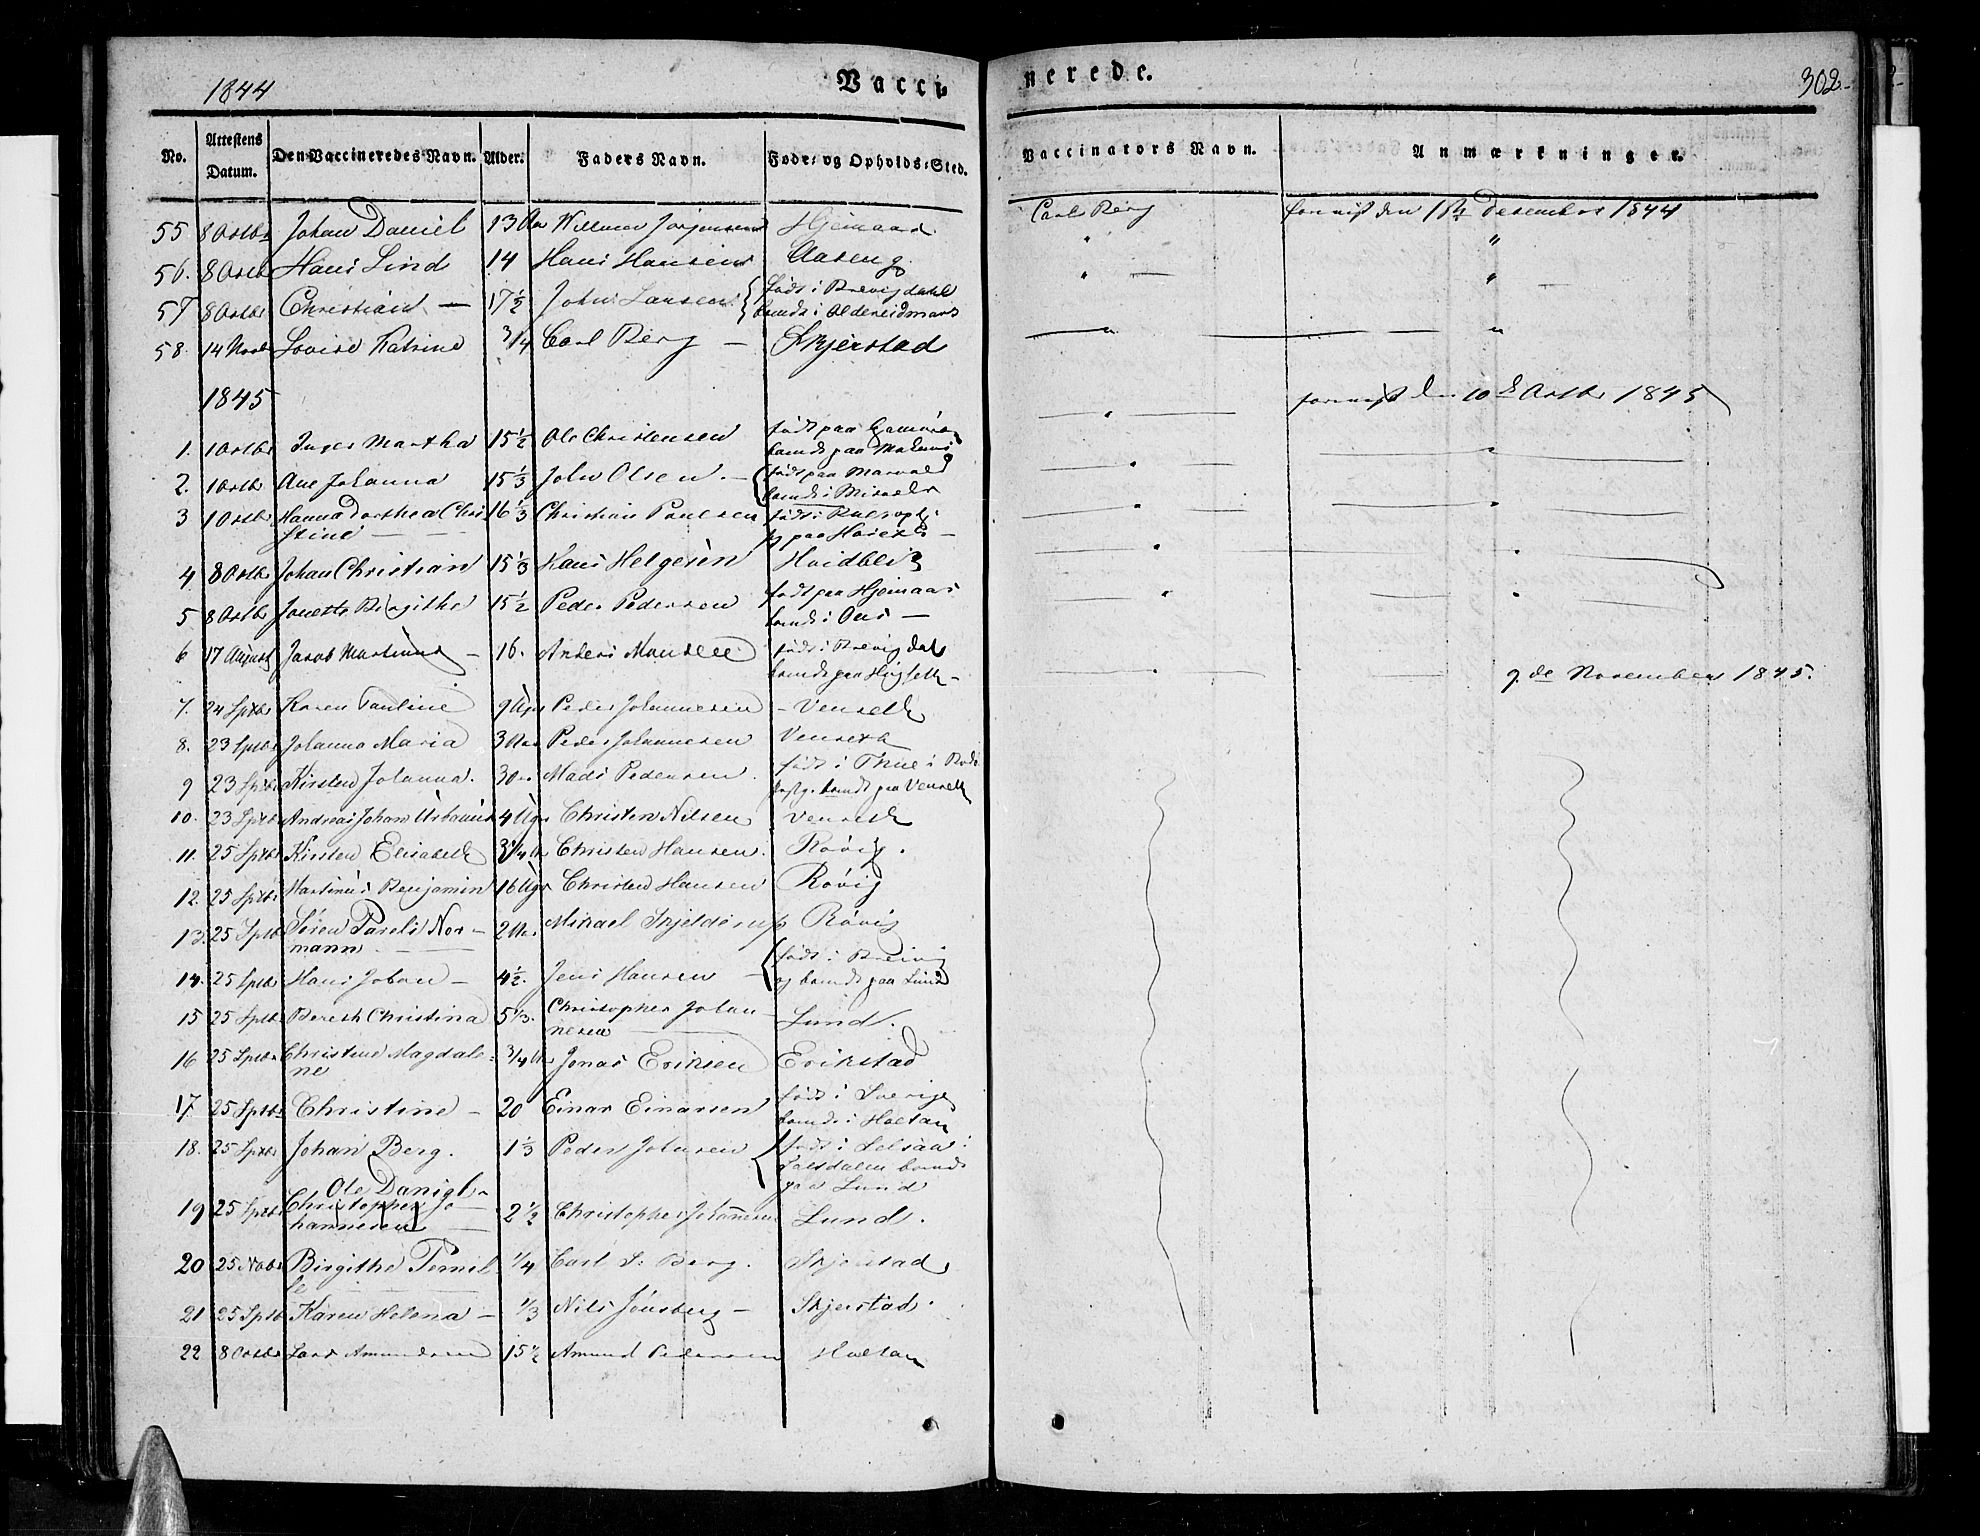 1844 Vacci-
No. Attestens Datum. Den Vaccineredes Navn. Alder. Faders Navn. Føde- og Opholds-Sted.
55 8 Octbr Johan Daniel 13 Aar Willum Jørgensen
56. 8 Octbr Hans Lind 14 Hans Hansen Aaseng
57 8 Octbr Christian — 17½ John Larsen født i Brevigdahl
boende i Oldereid
58. 14 Novbr Lovise Katrine 3/4 Carl Berg — Skjerstad
1845
1. 1 Octbr Inger Martha 15½ Ole Christensen født paa
boende paa
2. 1 Octbr Ane Johanna 15⅓ John Olsen — født paa
boende i Misvær
3 1 Octbr Hanna Dorthea Chri 16⅓ Christian Poulsen født i
stine — paa
4 8 Octbr Johan Christian 15⅓ Hans Helgesen Hvidblik
5 8 Octbr Janette Birgithe 15½ Peder Pedersen født paa Hjemaas
boende i
6 17 August Jacob Martinus — 16. Anders født i Brevigdal
boende paa
7. 24 Sptbr Karen Pauline 9 Uger Peder Johannesen — Venseth
8. 23 Sptbr Johanna Maria 3 Aar Peder Johannesen Venseth
9 23 Sptbr Kirsten Johanna. Mads Pedersen født i
boende paa Venseth
10. 23 Sptbr Andreas Johan Urbanus 4 Uger Christen Nilsen Venseth
11. 25 Sptbr Kirsten Elisabeth Christen Hansen. Røvig.
12. 25 Sptbr Martinus Benjamin 16 Uger Christen Hansen Røvig
13. 25 Sptbr Søren Parelí Nor- 2 Aar Mikael Skjelderup Røvig
mann —
14. 25 Sptbr Hans Johan — 4½. Jens Hansen — født i
og boende paa Lund
15 25 Sptbr Bereth Christina 5⅓. Christopher Johan-
nesen — Lund.
16 25 Sptbr Christine Magdale- 3/4 Aar Jonas Eriksen Erikstad
ne
17 25 Sptbr Christine — 20 Einar Einarsen født i Sverige
boende i Holtan
18. 25 Sptbr Johan Berg. 1⅓ Peder Johnsen født i
boende
paa Lund
Ole Daniel
19 25 Sptbr Christopher Jo- 2½ Christopher Johannesen Lund.
hannesen
20 25 Novbr Birgithe Pernil- 1/4 Carl S. Berg. Skjerstad
le —
21 25 Sptbr Karen Helena — ⅓ Nils Jønsberg — Skjerstad.
22 8 Octbr Lars Amundsen 15½ Amund Pedersen Holtan
nerede. 302
Vaccinators Navn. Anmærkninger.
Carl Berg forevist den 1ste December 1844
" "
" — "
forevist den 10de Octbr 1845
9de November 1845.